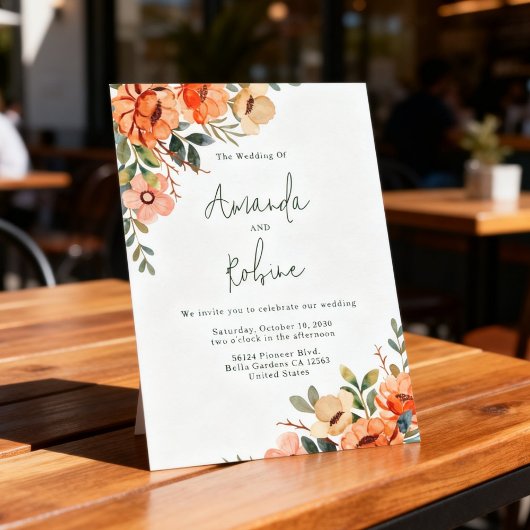 The Wedding Of
Amanda
AND
Robine
We invite you to celebrate our wedding
Saturday, October 10, 2030
two o'clock in the afternoon
56124 Pioneer Blvd.
Bella Gardens CA 12563
United States